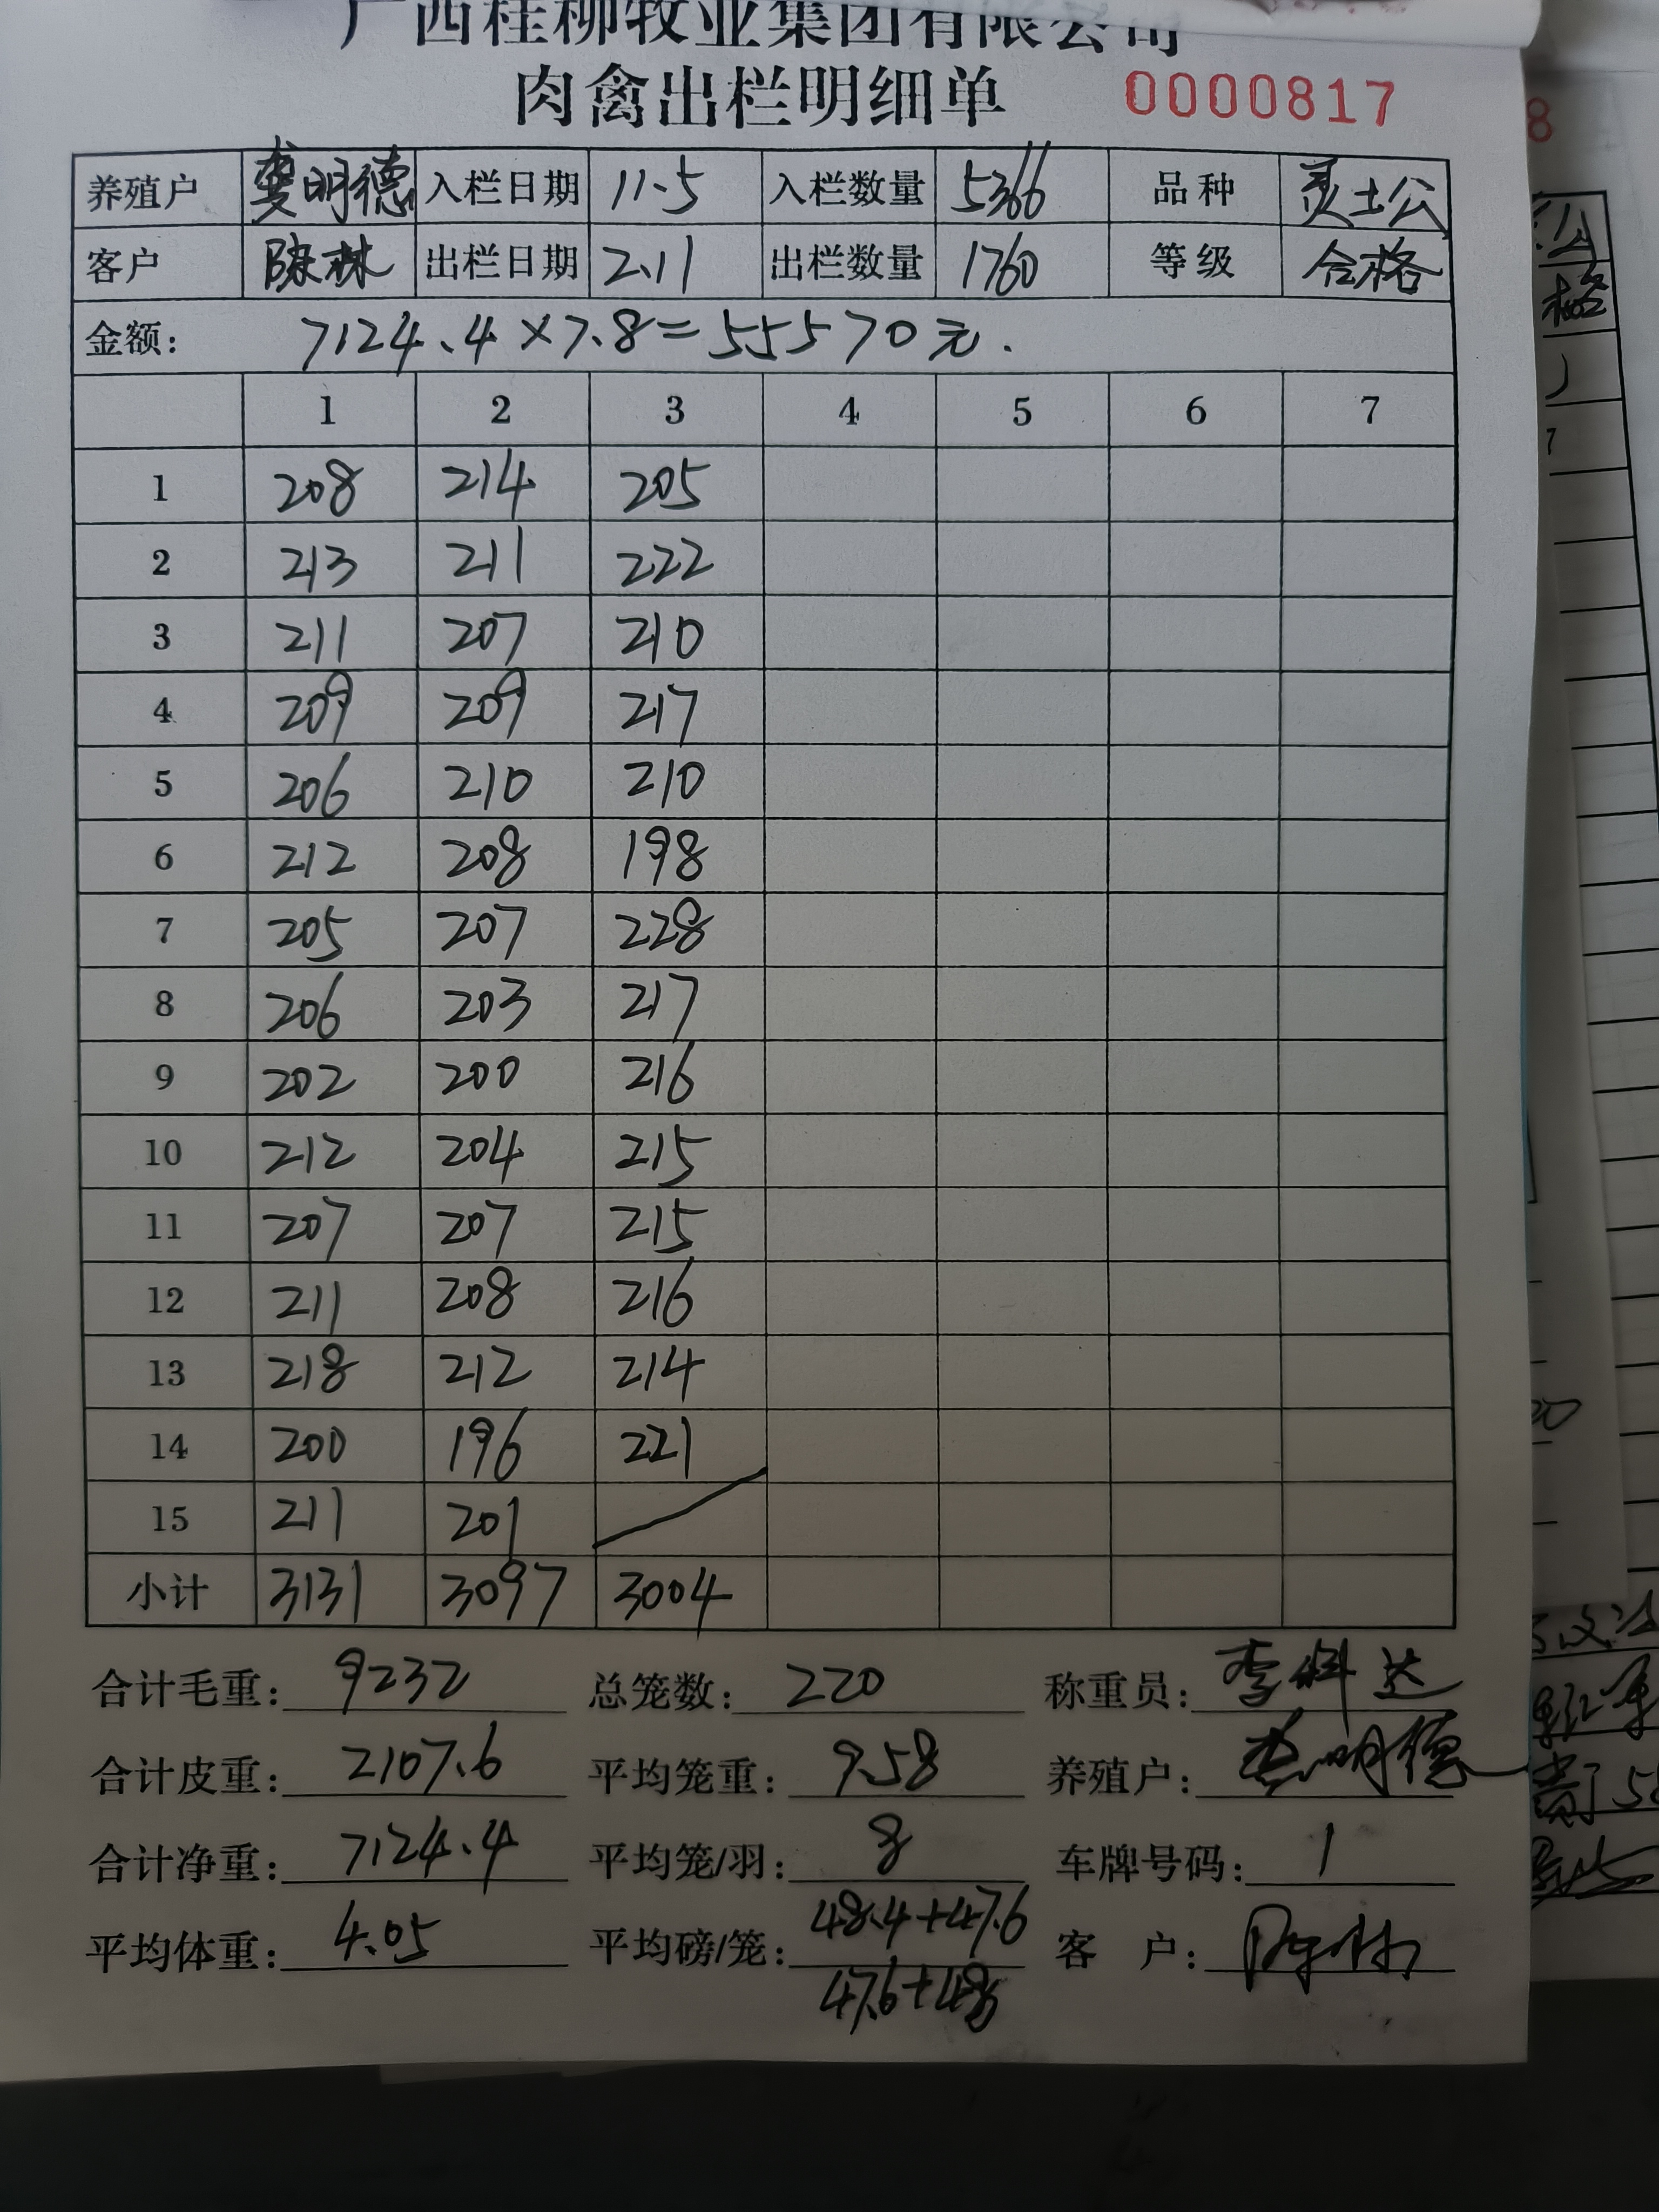 广西桂柳牧业集团有限公司
肉禽出栏明细单 0000817
养殖户 龚明德 入栏日期 11.5 入栏数量 5366 品种 灵土公
客户 陈林 出栏日期 2.11 出栏数量 1760 等级 合格
金额: 7124.4×7.8=55570元.
1 2 3 4 5 6 7
1 208 214 205
2 213 211 222
3 211 207 210
4 209 209 217
5 206 210 210
6 212 208 198
7 205 207 228
8 206 203 217
9 202 200 216
10 212 204 215
11 207 207 215
12 211 208 216
13 218 212 214
14 200 196 221
15 211 201
小计 3131 3097 3004
合计毛重: 9232 总笼数: 220 称重员: 李科达
合计皮重: 2107.6 平均笼重: 9.58 养殖户: 龚明德
合计净重: 7124.4 平均笼/羽: 8 车牌号码: 1
平均体重: 4.05 平均磅/笼: 48.4+47.6 客 户: 陈林
47.6+48